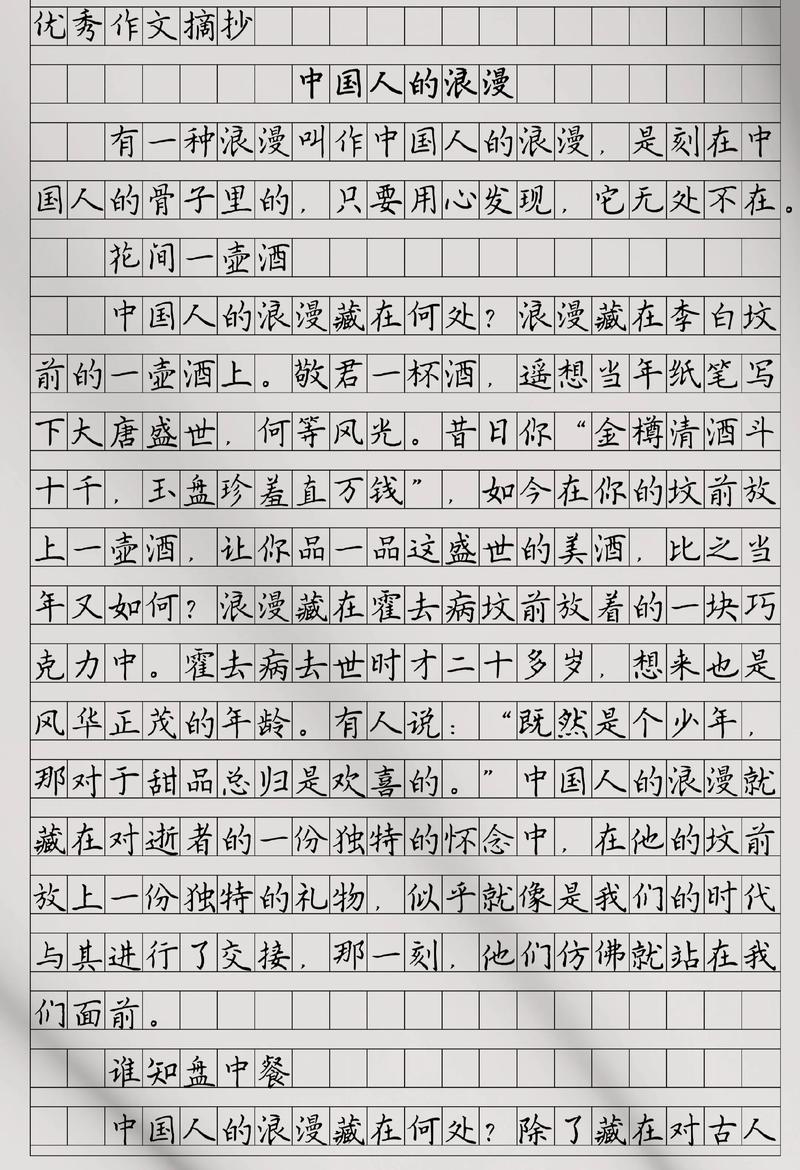 优秀作文摘抄
中国人的浪漫
有一种浪漫叫作中国人的浪漫，是刻在中
国人的骨子里的，只要用心发现，它无处不在。
花间一壶酒
中国人的浪漫藏在何处？浪漫藏在李白坟
前的一壶酒上。敬君一杯酒，遥想当年纸笔写
下大唐盛世，何等风光。昔日你“金樽清酒斗
十千，玉盘珍羞直万钱”，如今在你的坟前放
上一壶酒，让你品一品这盛世的美酒，比之当
年又如何？浪漫藏在霍去病坟前放着的一块巧
克力中。霍去病去世时才二十多岁，想来也是
风华正茂的年龄。有人说：“既然是个少年，
那对于甜品总归是欢喜的。”中国人的浪漫就
藏在对逝者的一份独特的怀念中，在他的坟前
放上一份独特的礼物，似乎就像是我们的时代
与其进行了交接，那一刻，他们仿佛就站在我
们面前。
谁知盘中餐
中国人的浪漫藏在何处？除了藏在对古人